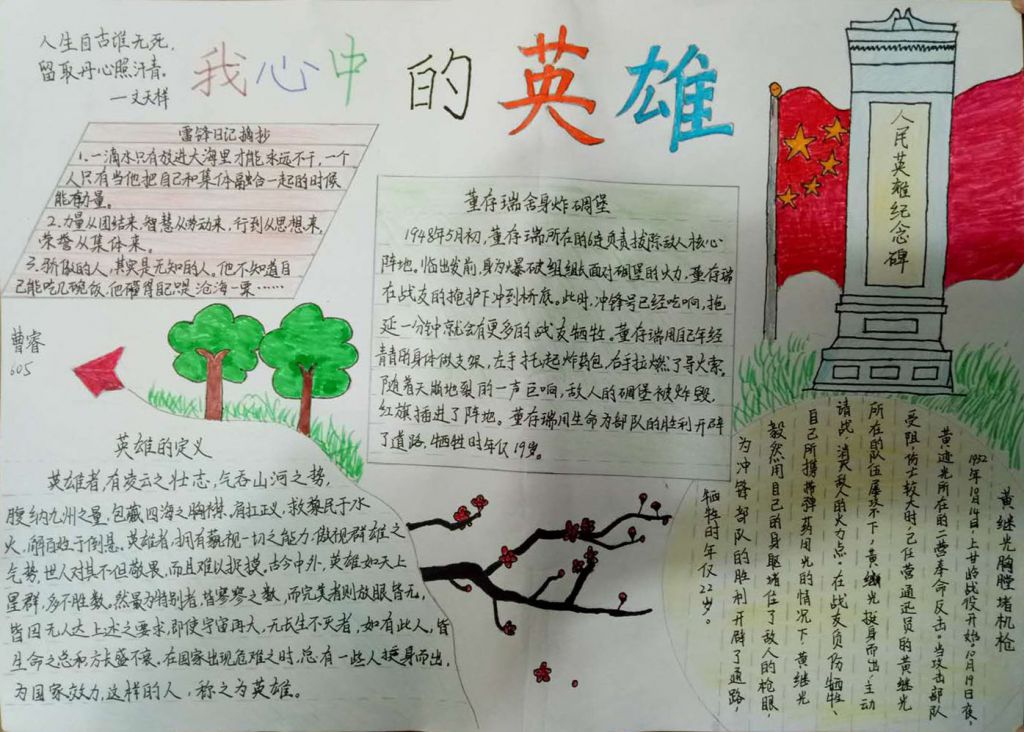 人生自古谁无死,
留取丹心照汗青。
一文天样
我心中的英雄
雷锋日记摘抄
1.一滴水只有放进大海里才能永远不干,一个
人只有当他把自己和集体融合一起的时候
能有力量。
2.力量从团结来,智慧从劳动来,行到从思想来,
荣誉从集体来。
3.骄傲的人,其实是无知的人。他不知道自
己能吃几碗饭,他懂得自己只是沧海一粟……
曹睿
605
董存瑞舍身炸碉堡
1948年5月初,董存瑞所在的6连负责拔除敌人核心
阵地。临出发前,身为爆破组组长面对碉堡的火力,董存瑞
在战友的掩护下冲到桥底。此时,冲锋号已经吃响,拖
延一分钟就会有更多的战友牺牲。董存瑞用自己年轻
青的身体做支架,左手托起炸药包,右手拉燃了导火索。
随着天崩地裂的一声巨响,敌人的碉堡被炸毁,
红旗插进了阵地。董存瑞用生命为部队的胜利开辟
了道路,牺牲时年仅19岁。
人民英雄纪念碑
英雄的定义
英雄者,有凌云之壮志,气吞山河之势,
腹纳九州之量,包藏四海之胸襟,肩扛正义,救黎民于水
火,解百姓于倒悬。英雄者,拥有藐视一切之能力,傲视群雄之
气势,世人对其不但敬畏,而且难以捉摸。古今中外,英雄如天上
星群,多不胜数。然最为特别者,皆寥寥之数,而完美者则放眼皆无,
皆因无人达上述之要求,即使宇宙再大,无长生不灭者,如有此人,皆
生命之总和方长盛不衰。在国家出现危难之时,总有一些人挺身而出,
为国家效力,这样的人,称之为英雄。
黄继光胸膛堵机枪
1952年10月14日上甘岭战役开始。10月19日夜,
黄继光所在的二营奉命反击。当攻击部队
受阻,伤亡较大时,已任营通迅员的黄继光
所在的队伍屡攻不下,黄继光挺身而出,主动
请战,消灭敌人的火力点。在战友负伤牺牲、
自己所携带弹药用光的情况下,黄继光
毅然用自己的身躯堵住了敌人的枪眼,
为冲锋部队的胜利开辟了道路,
牺牲时年仅22岁。